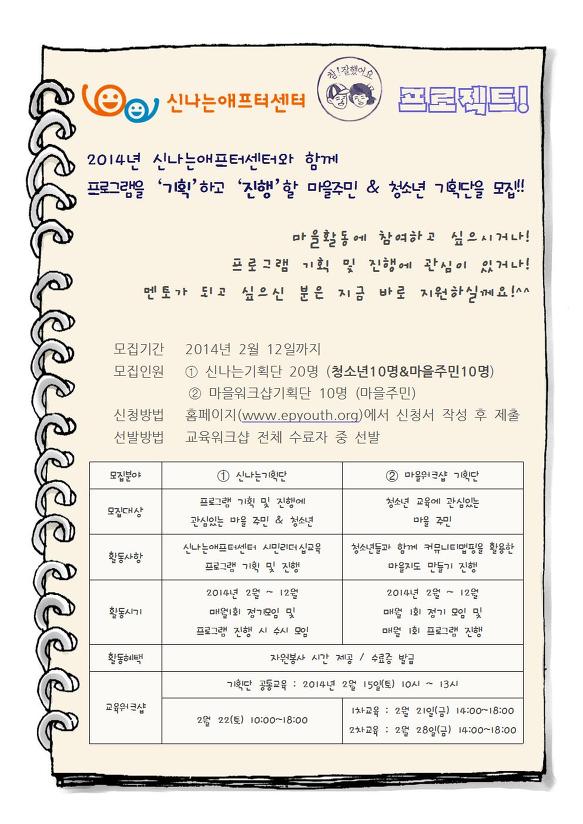 신나는애프터센터
참! 잘했어요
프로젝트!
2014년 신나는애프터센터와 함께
프로그램을 ‘기획’하고 ‘진행’할 마을주민 & 청소년 기획단을 모집!!
마을활동에 참여하고 싶으시거나!
프로그램 기획 및 진행에 관심이 있거나!
멘토가 되고 싶으신 분은 지금 바로 지원하실께요!^^
모집기간 2014년 2월 12일까지
모집인원 ① 신나는기획단 20명 (청소년10명&마을주민10명)
② 마을워크샵기획단 10명 (마을주민)
신청방법 홈페이지(www.epyouth.org)에서 신청서 작성 후 제출
선발방법 교육워크샵 전체 수료자 중 선발
모집분야 ① 신나는기획단 ② 마을워크샵 기획단
모집대상 프로그램 기획 및 진행에 관심있는 마을 주민 & 청소년 청소년 교육에 관심있는 마을 주민
활동사항 신나는애프터센터 시민리더십교육 프로그램 기획 및 진행 청소년들과 함께 커뮤니티맵핑을 활용한 마을지도 만들기 진행
활동시기 2014년 2월 ~ 12월 매월1회 정기모임 및 프로그램 진행 시 수시 모임 2014년 2월 ~ 12월 매월 1회 정기 모임 및 매월 1회 프로그램 진행
활동혜택 자원봉사 시간 제공 / 수료증 발급
교육워크샵 기획단 공통교육 : 2014년 2월 15일(토) 10시 ~ 13시
2월 22(토) 10:00~18:00
1차교육 : 2월 21일(금) 14:00~18:00
2차교육 : 2월 28일(금) 14:00~18:00